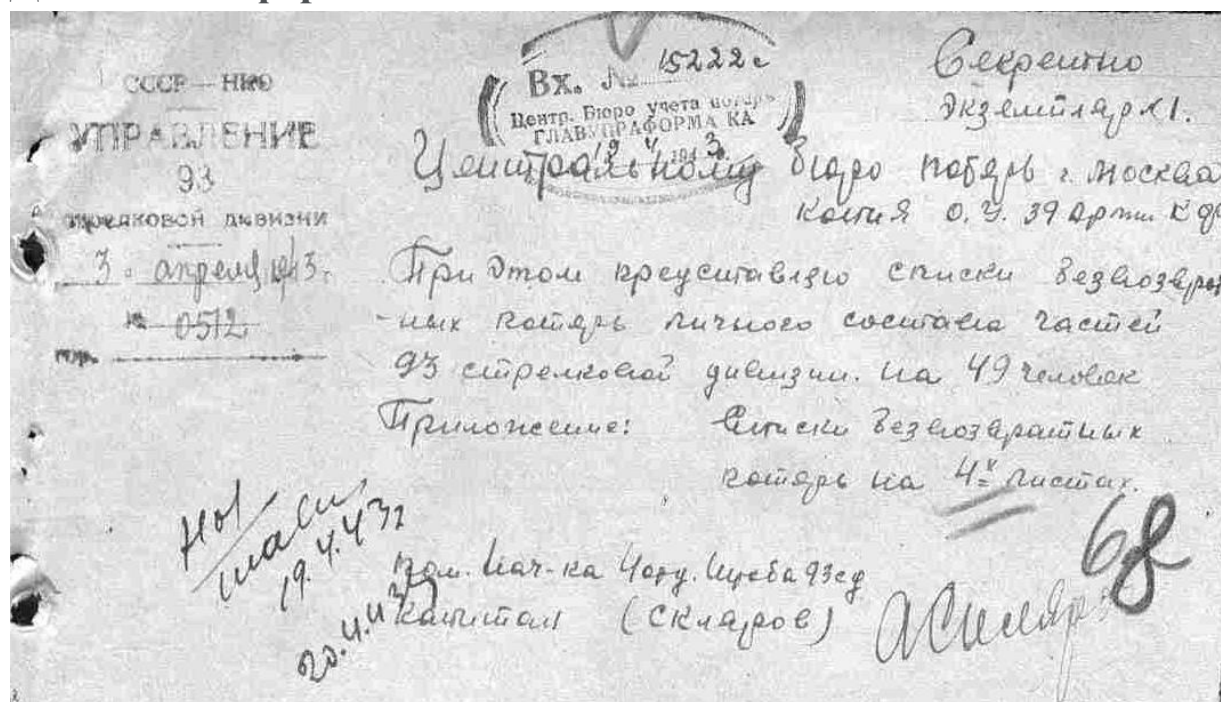 СССР — НКО
УПРАВЛЕНИЕ
93
стрелковой дивизии
3. апреля 1943г.
№ 0512
Вх. № 15222с
Центр. Бюро учета потерь
ГЛАВУПРАФОРМА КА
19 4 1943
Секретно
Экземпляр №1.
Центральному бюро потерь г. Москва
Копия О.У. 39 армии
При этом представляю списки безвозврат
-ных потерь личного состава частей
93 стрелковой дивизии. на 49 человек
Приложение: Списки безвозвратных
потерь на 4х листах.
68
19.4.43г
20.4.43
Пом. Нач-ка 4 отд. Штаба 93сд
Капитан (Скляров)